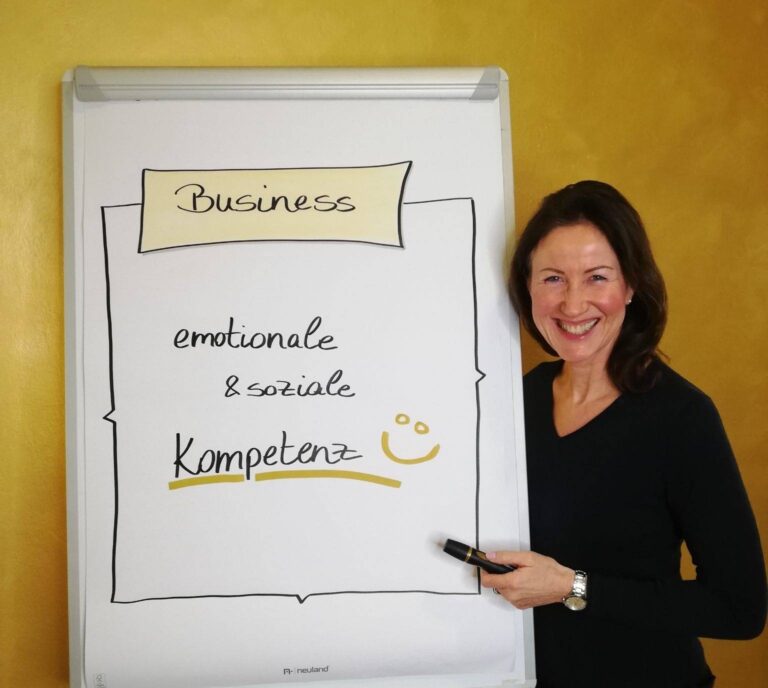 Business
emotionale
& soziale
Kompetenz
neuland